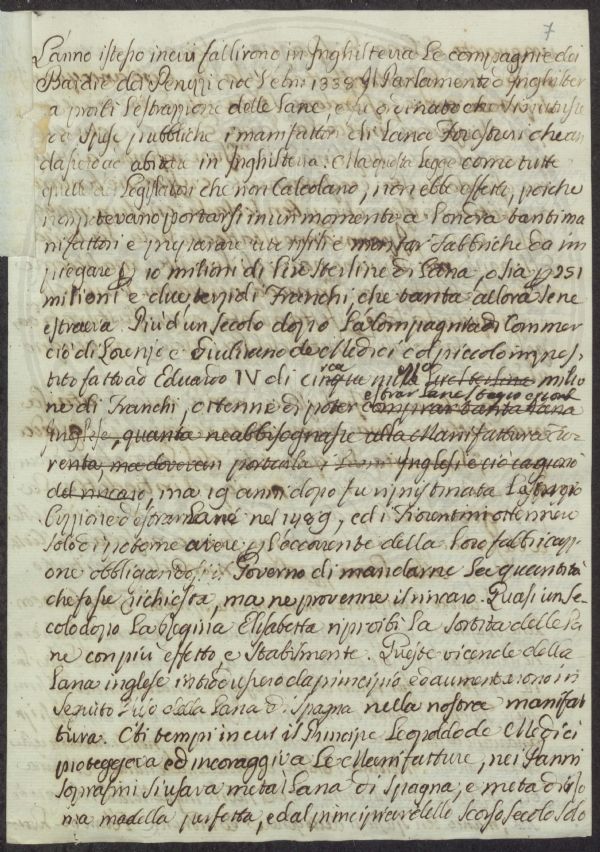 7
L'anno istesso in cui fallirono in Inghilterra le compagnie dei
Bardi e dei Peruzzi cioè 1338 Il Parlamento d'Inghilter
a proibì l'estrazione delle Lane, e fu ordinato che
a spese pubbliche i manifattori di Lana Forestieri che an
dassero ad abitare in Inghilterra: Ma questa legge come tutte
quelle de Legislatori che non Calcolano, non ebbe effetto, poiche
non potevano portarsi in un momento a Londra tanti ma
nifattori e preparare utensili e montar Fabbriche da im
piegare p 10 milioni di Lire Sterline di Lana, o sia p 251
milioni e due terzi di Franchi, che tanta allora se ne
estraeva. Più d'un secolo dopo La Compagnia di Commer
cio di Lorenzo e Giuliano de Medici col piccolo impres
tito fatto ad Eduardo IV di circa mezzo milio
ne di Franchi, ottenne di poter estrar Lane
comprar tanta Lana
Inglese, quanta ne abbisognasse alla Manifattura Fio
rentina, ma dovevan portarla i Legni Inglesi e ciò cagionò
del rincaro, ma 19 anni dopo fu ripristinata La
bizione d'estrar Lane nel 1489, ed i Fiorentini ottennero
solo di poterne avere p l'occorrente della loro fabbricazi
one obbligandosi il Governo di mandarne la quantità
che fosse richiesta, ma ne provenne il rincaro. Quasi un Se
colo dopo La Regina Elisabetta riproibì La Sortita delle La
ne con più effetto e stabilmente. Queste vicende della
Lana inglese introdussero da principio ed aumentarono in
seguito l'uso della Lana di Spagna nella nostra manifat
tura. Ai tempi in cui il Principe Leopoldo de Medici
proteggeva ed incoraggiva Le Manifatture, nei Panni
soprafini si usava metà Lana di Spagna, e metà di Ro
ma ma della perfetta, e dal principiar dello scorso secolo solo